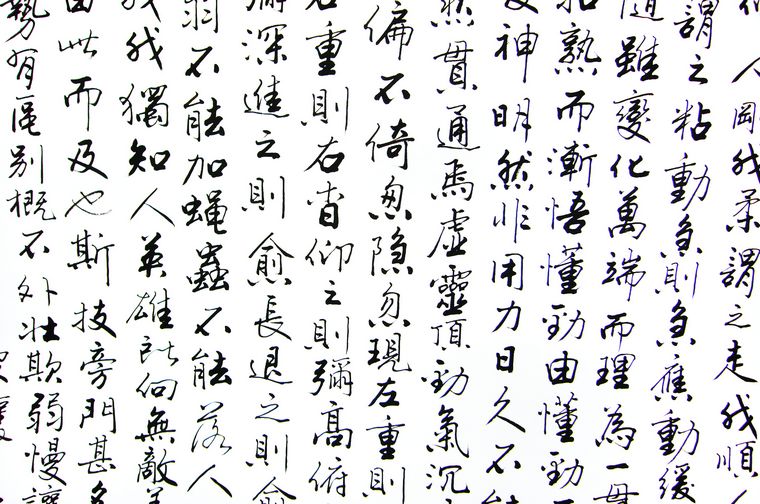 人剛我柔謂之走我順人
謂之粘動急則急應動緩
隨雖變化萬端而理為一
熟而漸悟懂勁由懂勁而
神明然非用力日久不能
然貫通焉虛靈頂勁氣沉
偏不倚忽隐忽現左重則
重則右杳仰之則彌高俯
彌深進之則愈長退之則愈
羽不能加蝇蟲不能落人
我獨知人英雄所向無敵
由此而及也斯技旁門甚多
勢有區别概不外壯欺弱慢讓